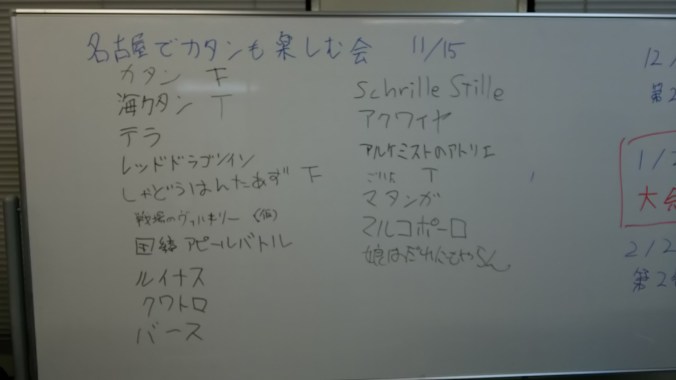 名古屋でカタンも楽しむ会 11/15
カタン 下
海カタン T
テラ
レッドドラゴンイン
しゃどうはんたあず 下
戦場のヴァルキリー (仮)
国緯アピールバトル
ルイナス
クワトロ
バース
Schrille Stille
アクワイヤ
アルケミストのアトリエ
ごいた T
マタンガ
マルコポーロ
娘は
12/
第2
1/2
大会
2/2
第2